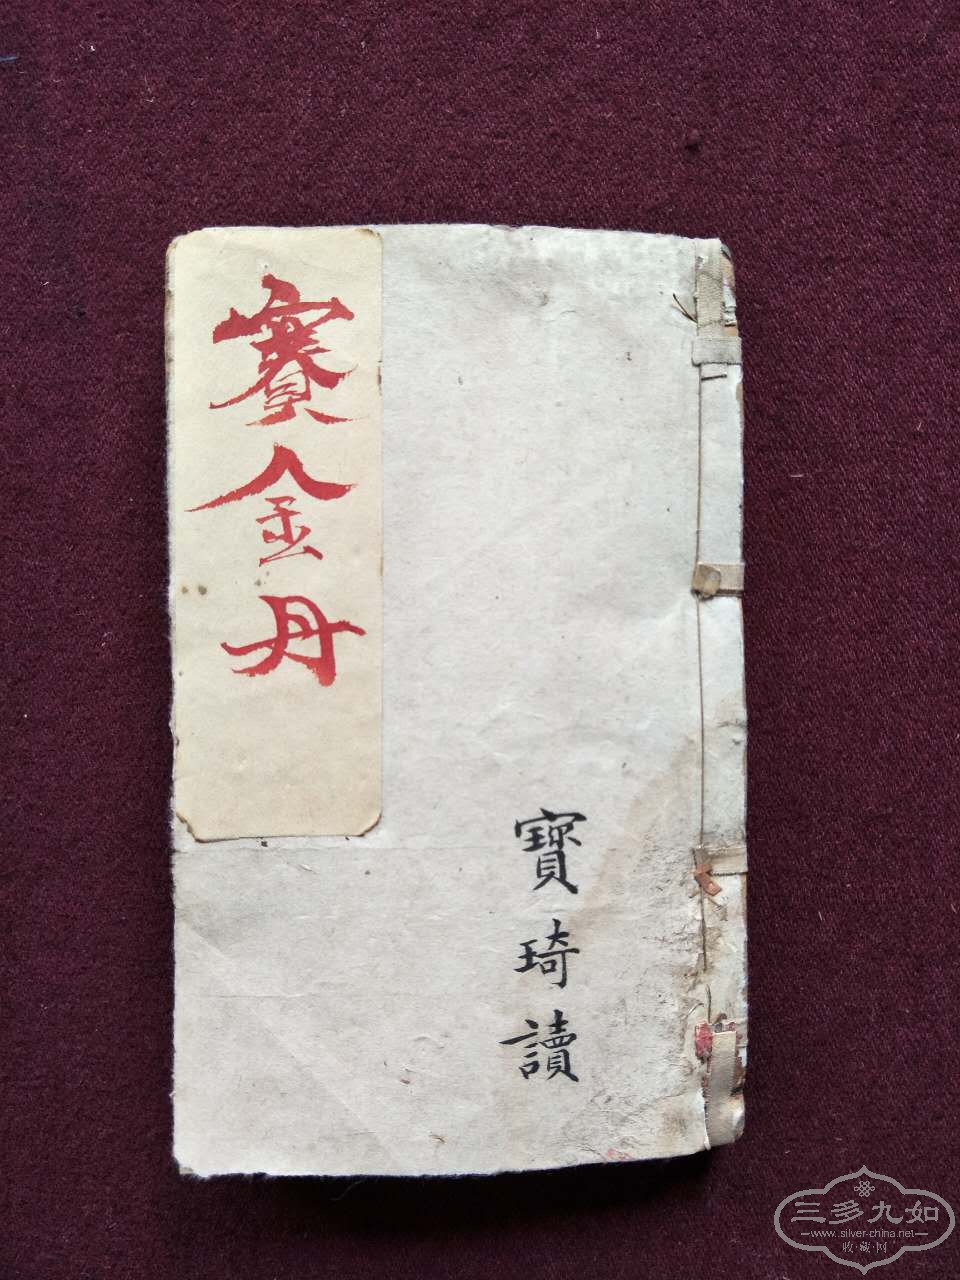 賽金丹
寶琦讀
三多九如
www.silver-china.net
收·藏·网